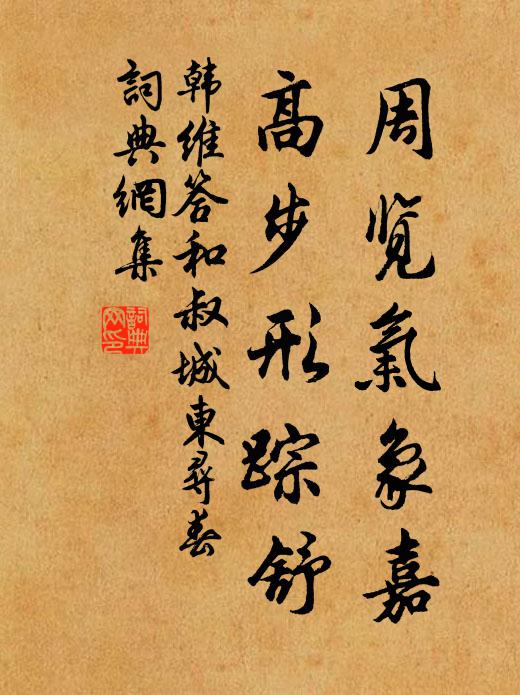 周览氣象嘉
高步形踪舒
韩维答和叔城東尋春
詞典網集
詞典
网印